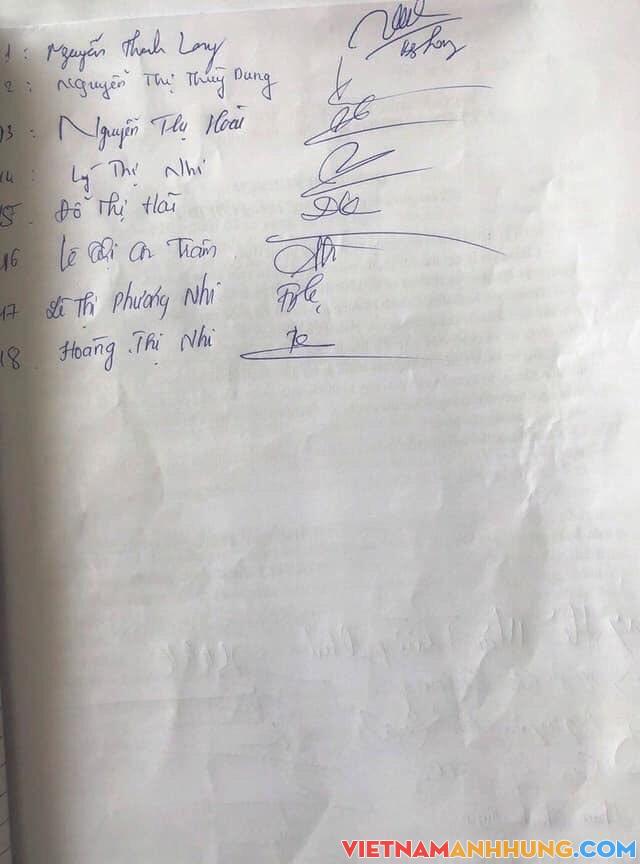 1 : Nguyễn Thanh Long
Bs Long
2 : Nguyễn Thị Thùy Dung
13 : Nguyễn Thị Hoài
14 : Lý Thị Nhi
15 Đỗ Thị Hải
16 Lê Thị Trâm
17 Lê Thị Phương Nhi
18 Hoàng Thị Nhi
VIETNAMANHHUNG.COM